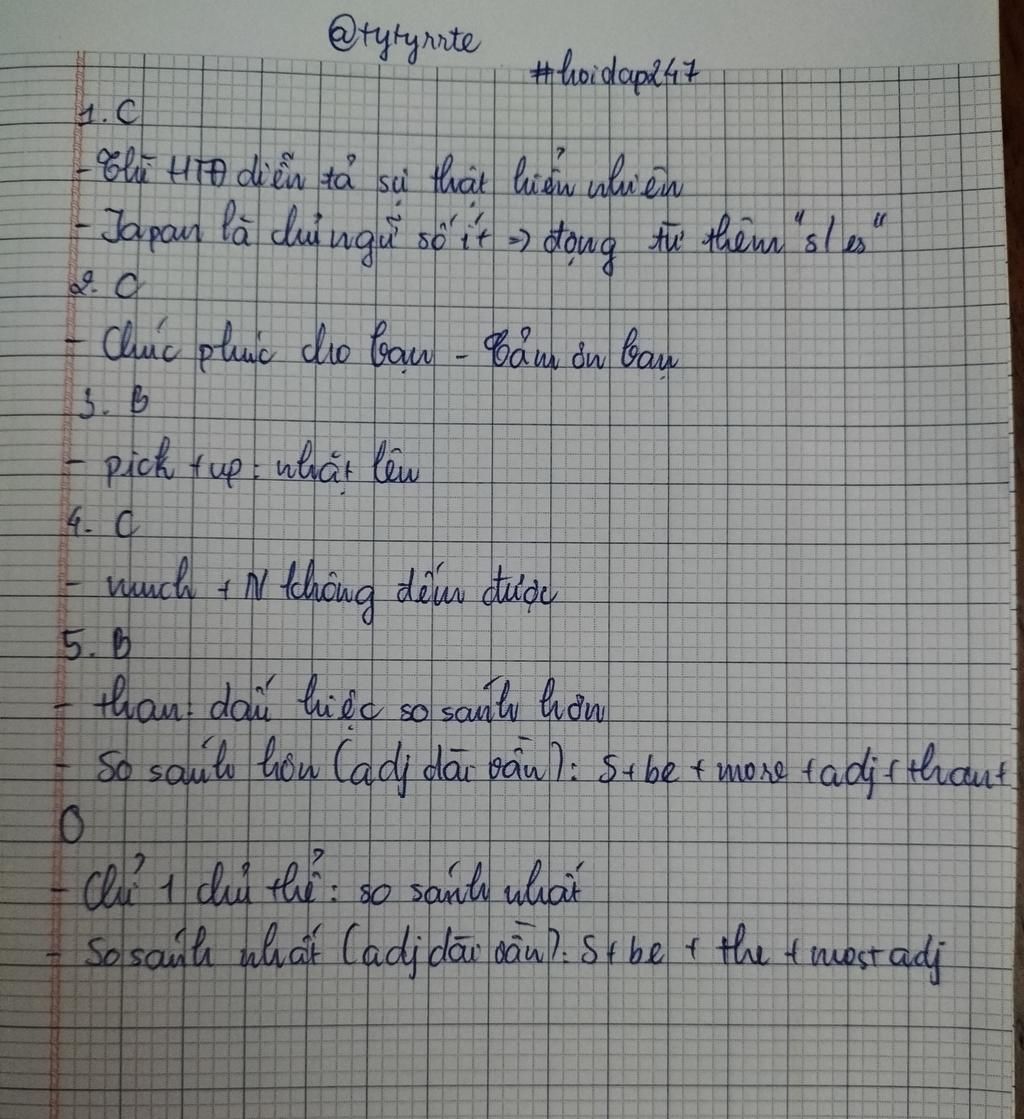 @tytyrrte
#hoidap247
1. C
- Thì HTĐ diễn tả sự thật hiển nhiên
- Japan là chủ ngữ số ít => động từ thêm "s/es"
2. C
- Chúc phúc cho bạn - Cảm ơn bạn
3. B
- pick + up: nhặt lên
4. C
- much + N không đếm được
5. B
- than: dấu hiệu so sánh hơn
- So sánh hơn (adj dài vần): S + be + more + adj + than +
O
- Chỉ 1 chủ thể: so sánh nhất
- So sánh nhất (adj dài vần): S + be + the + most adj